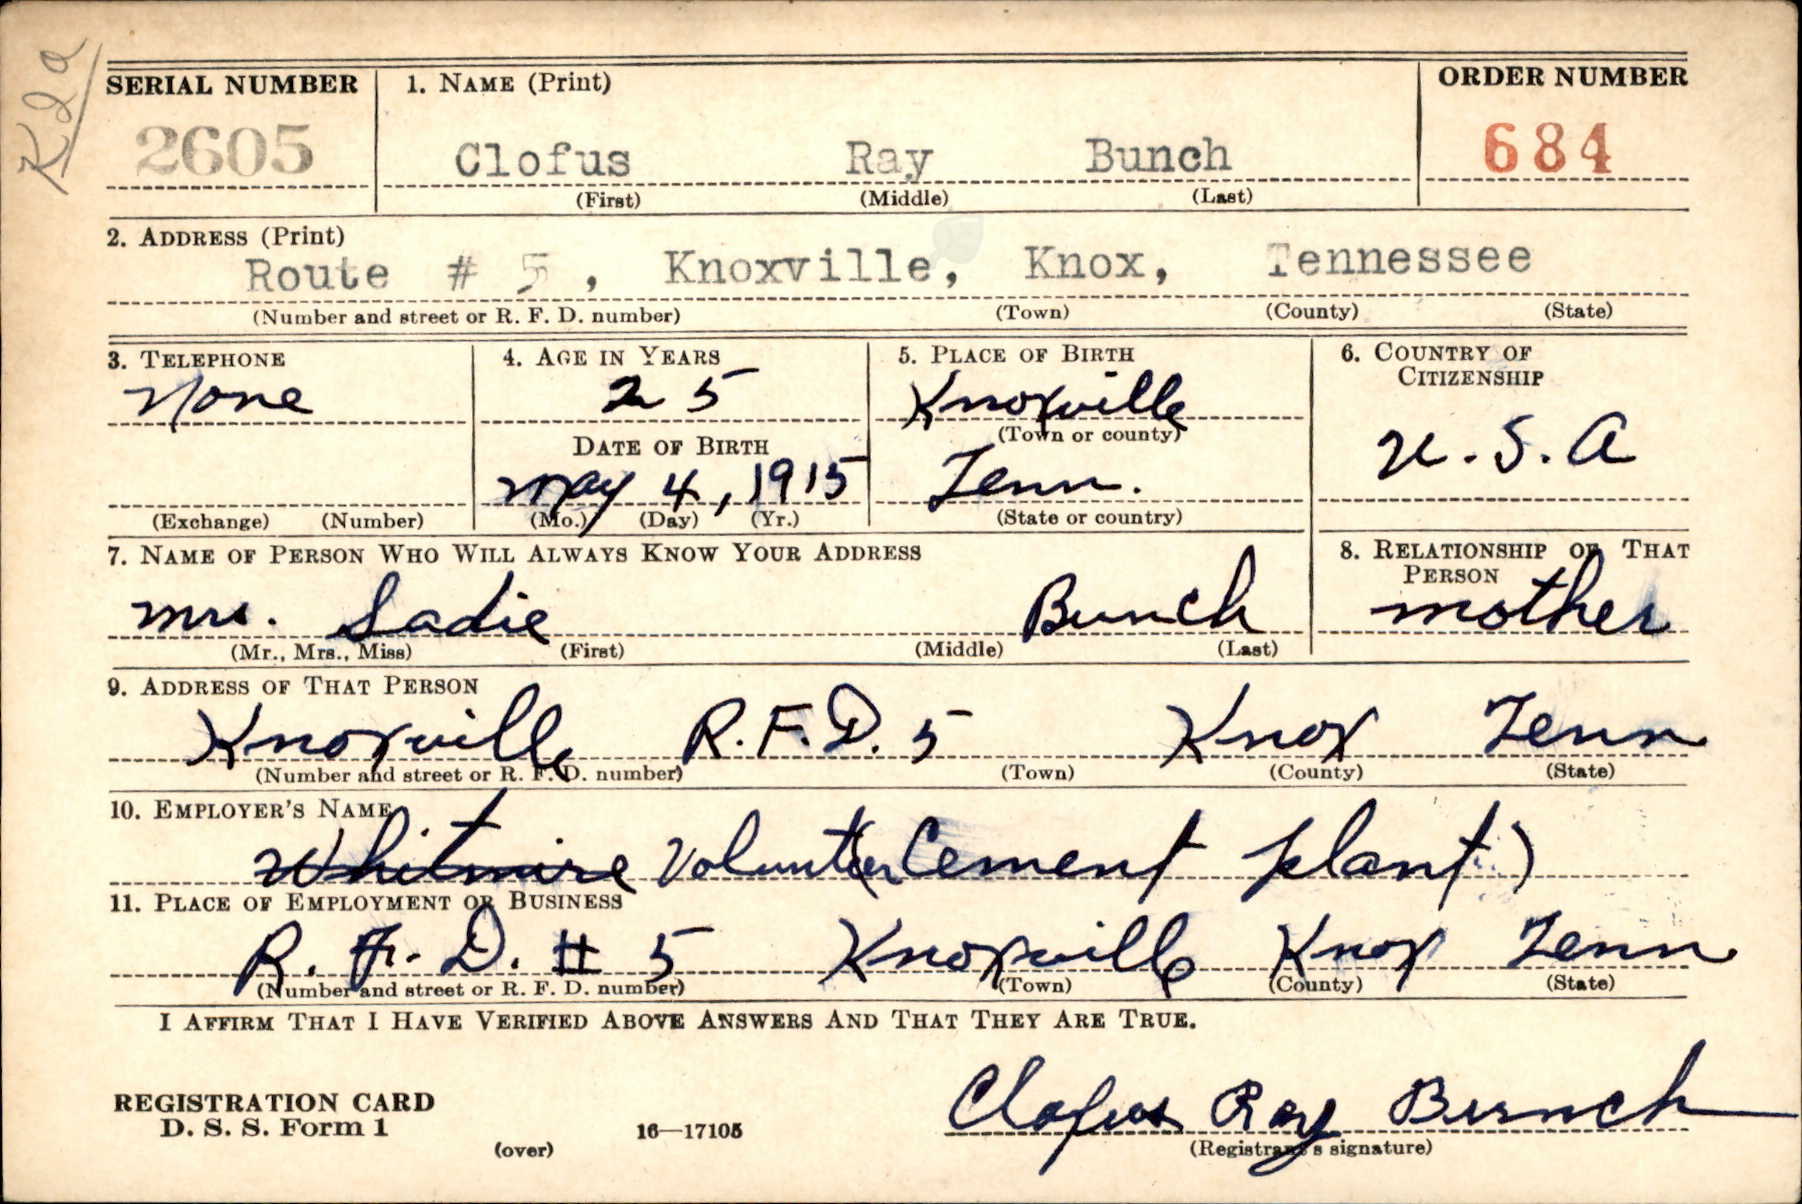 K29
SERIAL NUMBER 1. NAME (Print) ORDER NUMBER
2605 Clofus Ray Bunch 684
(First) (Middle) (Last)
2. ADDRESS (Print)
Route # 5, Knoxville, Knox, Tennessee
(Number and street or R. F. D. number) (Town) (County) (State)
3. TELEPHONE 4. AGE IN YEARS 5. PLACE OF BIRTH 6. COUNTRY OF CITIZENSHIP
None 25 Knoxville
(Town or county)
DATE OF BIRTH U.S.A
May 4, 1915 Tenn.
(Exchange) (Number) (Mo.) (Day) (Yr.) (State or country)
7. NAME OF PERSON WHO WILL ALWAYS KNOW YOUR ADDRESS 8. RELATIONSHIP OF THAT PERSON
Mrs. Sadie Bunch mother
(Mr., Mrs., Miss) (First) (Middle) (Last)
9. ADDRESS OF THAT PERSON
Knoxville R.F.D. 5 Knox Tenn
(Number and street or R. F. D. number) (Town) (County) (State)
10. EMPLOYER'S NAME
Whitmire Volunteer Cement plant)
11. PLACE OF EMPLOYMENT OR BUSINESS
R. F. D. # 5 Knoxville Knox Tenn
(Number and street or R. F. D. number) (Town) (County) (State)
I AFFIRM THAT I HAVE VERIFIED ABOVE ANSWERS AND THAT THEY ARE TRUE.
Clofus Ray Bunch
REGISTRATION CARD
D. S. S. Form 1
(over) 16—17105 (Registrant's signature)